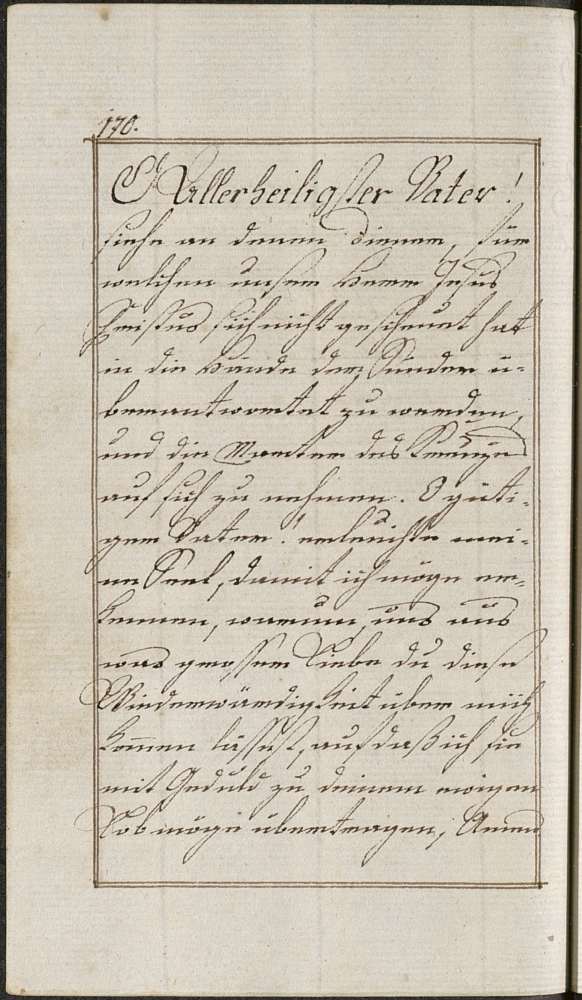 170.
O Allerheiligster Vater!
siehe an denen Diener, für
welchen unser Herr Jesus
Christus sich nicht gescheuet hat
in die Hände der Sünder ü-
berantwortet zu werden,
und die Marter des Kreuzes
auf sich zu nehmen. O güti-
ger Vater! erleuchte mei-
ne Seel, damit ich möge er-
kennen, warum, und aus
was grosser Liebe du diese
Wiederwärdigkeit über mich
komen lässest, auf daß ich sie
mit Geduld zu deinem ewigen
Lob möge übertragen, Amen